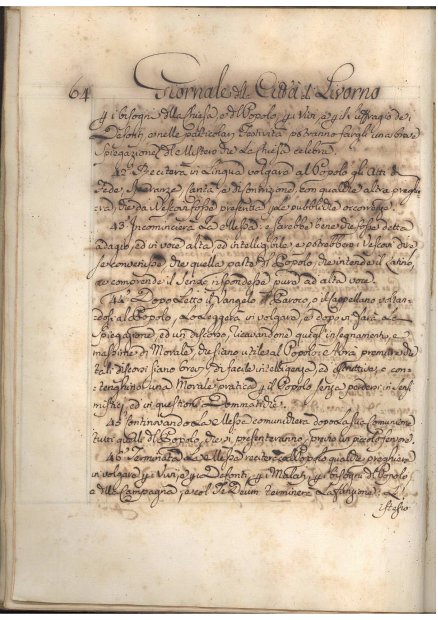 64 Giornale della Città di Livorno
i bisogni della Chiesa, e del Popolo, i Vivi, e
Defonti, e nelle particolari festività potranno farglj una breve
Spiegazione del Mistero che la Chiesa celebra.
42 Reciterà in Lingua volgare al Popolo gli Atti di
Fede, Speranza, Carità, e di Contrizione, con qualche altra preghie
ra, che dai Vescovi fosse prescritta le pubbliche occorrenze.
43 Incomincierà la Messa: e sarebbe bene che fosse detta
adagio, ed in voce alta, ed intelligibile, e potrebbero i Vescovi
se convenisse che quella parte del Popolo che intende il Latino
e comprende il Senso, rispondesse pure ad alta voce.
44 Dopo Letto il Vangelo il Paroco, o il Cappellano voltan
dosi al Popolo, lo leggerà in volgare, e dopo vi farà la
Spiegazione, ed un discorso, ricavandone quegl'insegnamenti, e
massime di Morale, che siano utile al Popolo: e
tali discorsi siano brevi, di facile intelligenza, ed istruttivi, e con
tenghino una Morale pratica il Popolo senza perdersi in sensi
mistici, ed in questioni Dommatiche.
45 Continovandosi la Messa comunicherà dopo la sua Comunione
tutti quelli del Popolo, che si presenteranno,
46 Terminata la Messa reciterà al Popolo qualche preghiera
in volgare i Vivi, e i Defonti, i Malati, i bisogni del Popolo,
e della Campagna, e col Te Deum terminerà la funzione. L'
istesso